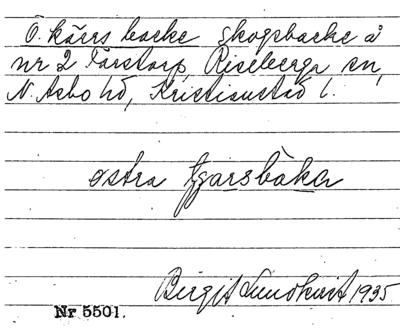 Ö. kärrs backe skogsbacke å
nr 2 Färstorp, Riseberga sn,
N. Åsbo hd, Kristianstad l.
östra
Birgit Lundkvist 1935
Nr 5501.